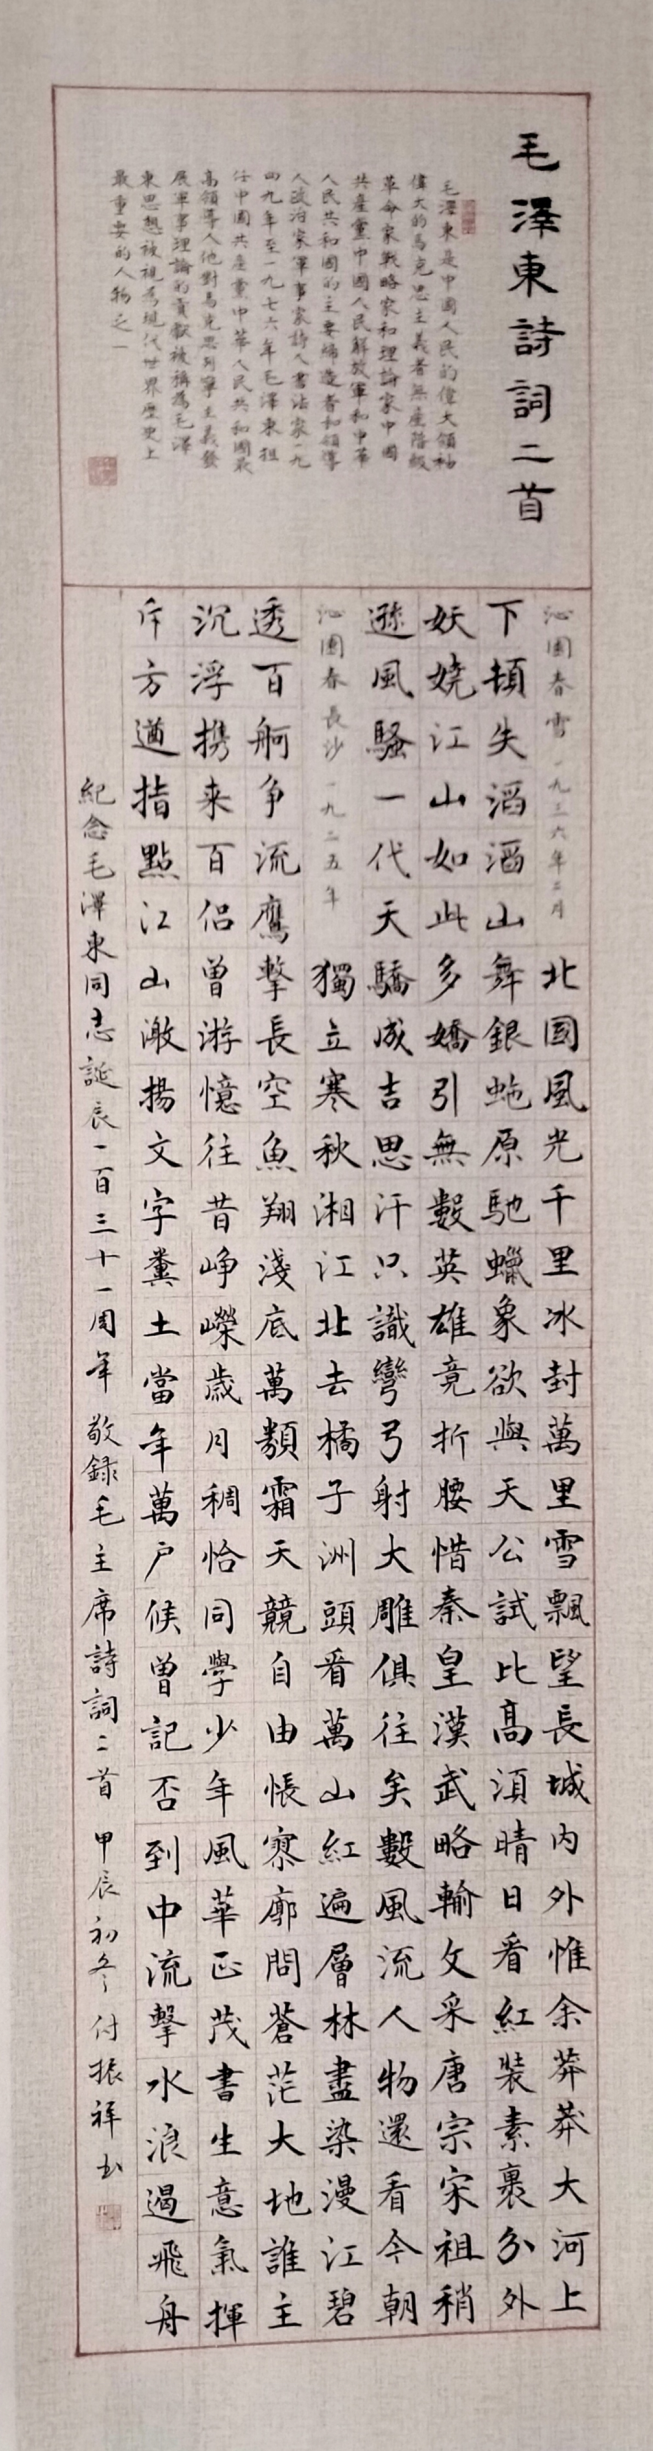 毛澤東詩詞二首
毛澤東是中國人民的偉大領袖
偉大的馬克思主義者無産階級
革命家戰略家和理論家中國
共産黨中國人民解放軍和中華
人民共和國的主要締造者和領導
人政治家軍事家詩人書法家一九
四九年至一九七六年毛澤東担
任中國共産黨中華人民共和國最
高領導人他對馬克思列寧主義發
展軍事理論的貢獻被稱爲毛澤
東思想被視爲現代世界歷史上
最重要的人物之一
沁園春雪一九三六年二月 北國風光千里冰封萬里雪飄望長城内外惟余莽莽大河上
下頓失滔滔山舞銀虵原馳蠟象欲與天公試比高湏晴日看紅裝素裹分外
妖娆江山如此多嬌引無數英雄竟折腰惜秦皇漢武略輸文采唐宗宋祖稍
遜風騷一代天驕成吉思汗只識彎弓射大雕俱往矣數風流人物還看今朝
沁園春長沙一九二五年 獨立寒秋湘江北去橘子洲頭看萬山紅遍層林盡染漫江碧
透百舸争流鷹擊長空魚翔淺底萬類霜天競自由悵寥廓問蒼茫大地誰主
沉浮携来百侣曾游憶往昔峥嶸歲月稠恰同學少年風華正茂書生意氣揮
斥方遒指點江山激揚文字糞土當年萬户侯曾記否到中流擊水浪遏飛舟
紀念毛澤東同志誕辰一百三十一周年 敬録毛主席詩詞二首 甲辰初冬付振祥书